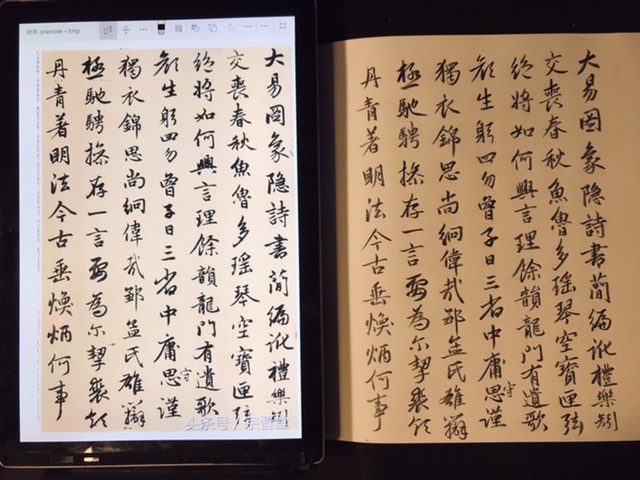 大易圖象隐詩書简編訛禮樂矧
交喪春秋魚魯多瑶琴空寶匣弦
絶將如何興言理餘韻龍門有遺歌
顔生躬四勿曾子日三省中庸思謹
守
獨衣錦思尚絅偉哉鄒孟氏雄辯
極馳騁操存一言要為尔挈裘領
丹青著明法今古垂煥炳何事
大易圖象隐詩書简編訛禮樂矧
交喪春秋魚魯多瑶琴空寶匣弦
絶將如何興言理餘韻龍門有遺歌
顔生躬四勿曾子日三省中庸思謹
守
獨衣錦思尚絅偉哉鄒孟氏雄辯
極馳騁操存一言要為尔挈裘領
丹青著明法今古垂煥炳何事
头条号 /